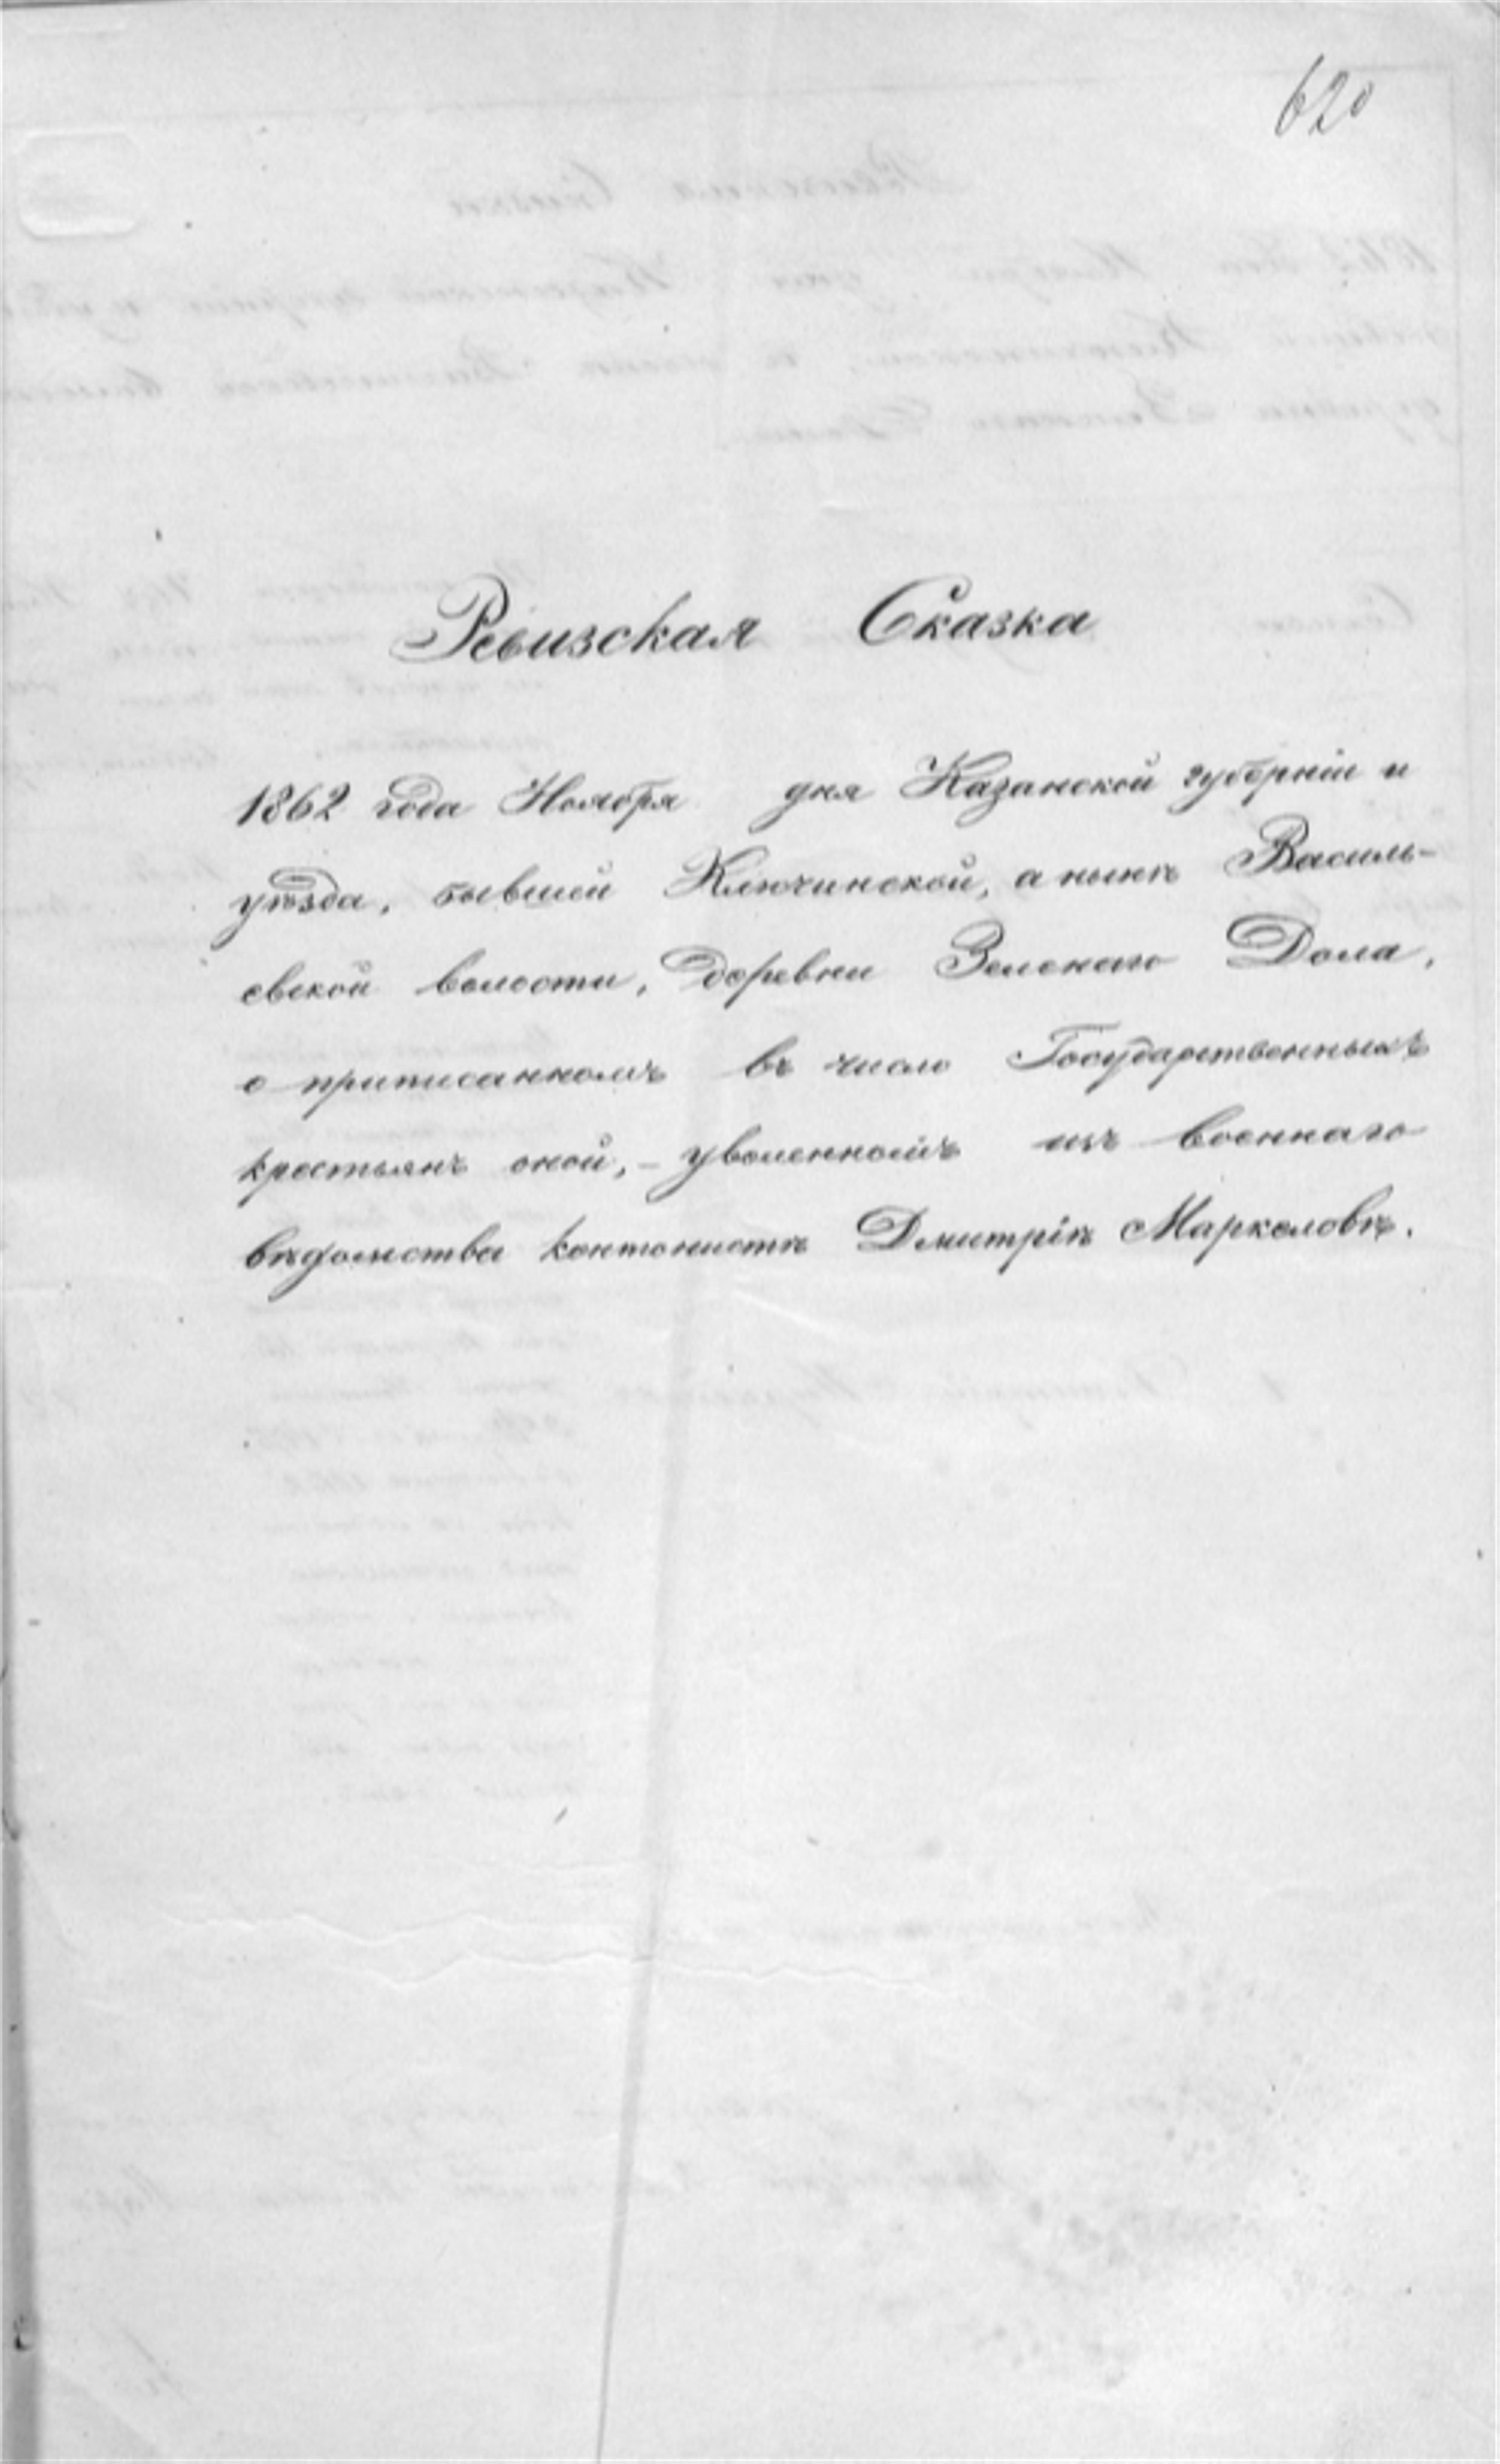 620
Ревизская Сказка
1862 года Ноября дня Казанской губерніи и
уѣзда, бывшей Ключинской, а нынѣ Василь-
евской волости, деревни Зеленаго Дола,
о приписанномъ въ число Государственныхъ
крестьянъ оной, – уволенномъ изъ военнаго
вѣдомства кантонистѣ Дмитріѣ Маркеловѣ.